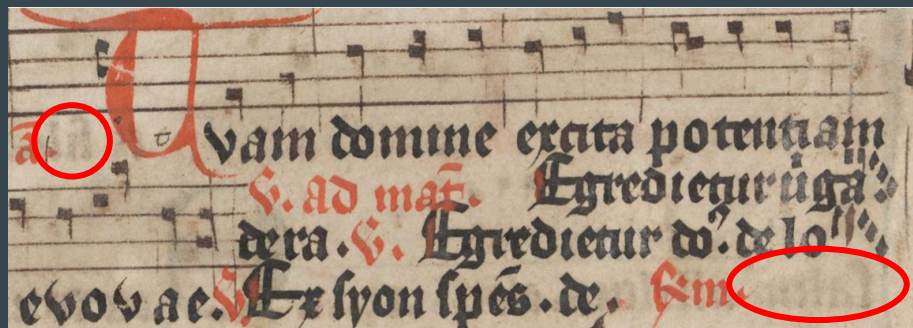 a T vam domine excita potentiam
V. ad mat̄. Egredietur uīga
de ra. V. Egredietur do᷒. de lo
evovae. V. Ex syon spēs. de.